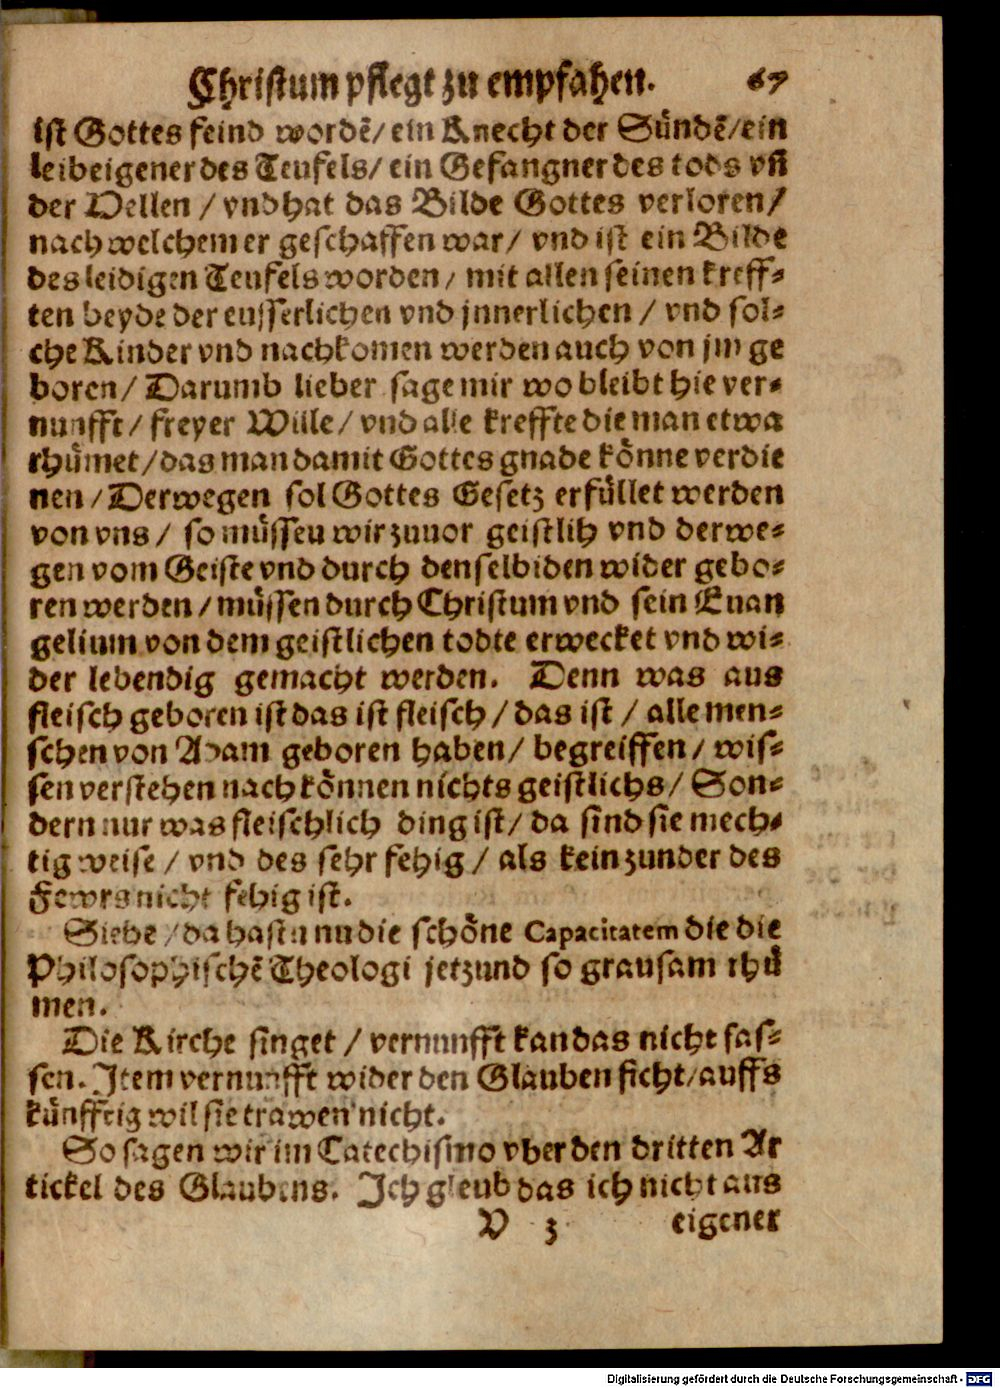 Christum pflegt zu empfahen. 67
ist Gottes feind wordē/ ein Knecht der Sündē/ ein
leibeigener des Teufels/ ein Gefangner des tods vñ
der Hellen / vnd hat das Bilde Gottes verloren/
nach welchem er geschaffen war/ vnd ist ein Bilde
des leidigen Teufels worden/ mit allen seinen kreff-
ten beyde der eusserlichen vnd jnnerlichen / vnd sol-
che Kinder vnd nachkomen werden auch von jm ge
boren/ Darumb lieber sage mir wo bleibt hie ver-
nunfft/ freyer Wille/ vnd alle kreffte die man etwa
rhümet/ das man damit Gottes gnade könne verdie
nen/ Derwegen sol Gottes Gesetz erfüllet werden
von vns/ so müssen wir zuuor geistlih vnd derwe-
gen vom Geiste vnd durch denselbiden wider gebo-
ren werden/ müssen durch Christum vnd sein Euan
gelium von dem geistlichen todte erwecket vnd wi-
der lebendig gemacht werden. Denn was aus
fleisch geboren ist das ist fleisch/ das ist / alle men-
schen von Adam geboren haben/ begreiffen/ wis-
sen verstehen nach können nichts geistlichs/ Son-
dern nur was fleischlich ding ist/ da sind sie mech-
tig weise / vnd des sehr fehig / als kein zunder des
Fewrs nicht fehig ist.
Siehe / da hastu nu die schöne Capacitatem die die
Philosophischē Theologi jetzund so grausam rhü
men.
Die Kirche singet / vernunfft kan das nicht fas-
sen. Item vernunfft wider den Glauben ficht/ auffs
künfftig wil sie trawen nicht.
So sagen wir im Catechismo vber den dritten Ar
tickel des Glaubens. Ich gleub das ich nicht aus
V 3 eigener
Digitalisierung gefördert durch die Deutsche Forschungsgemeinschaft - DFG